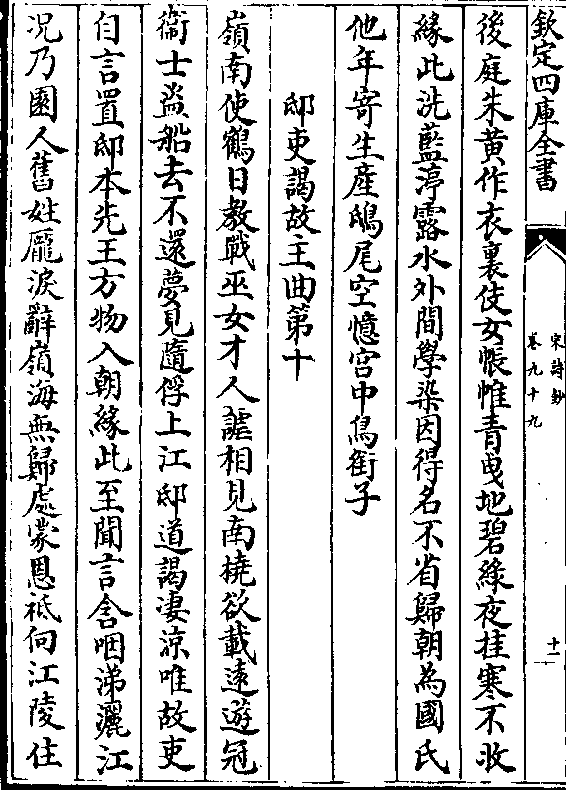 欽定四庫全書
宋詩鈔
卷九十九
十一
後庭朱黃作衣裏伎女帳帷青曳地碧緣夜挂寒不收
緣此洗藍渟露水外間學染因得名不省歸朝為國氏
他年寄生產鴟尾空憶宫中鳥銜子
邸吏謁故主曲第十
嶺南使鶴日教戰巫女才人謔相見南橈欲載遠遊冠
衞士盗船去不還夢見隨俘上江邸道謁淒涼唯故吏
自言置邸本先王方物入朝緣此至聞言含咽涕灑江
况乃圉人舊姓龐淚辭嶺海無歸處蒙恩祗向江陵住